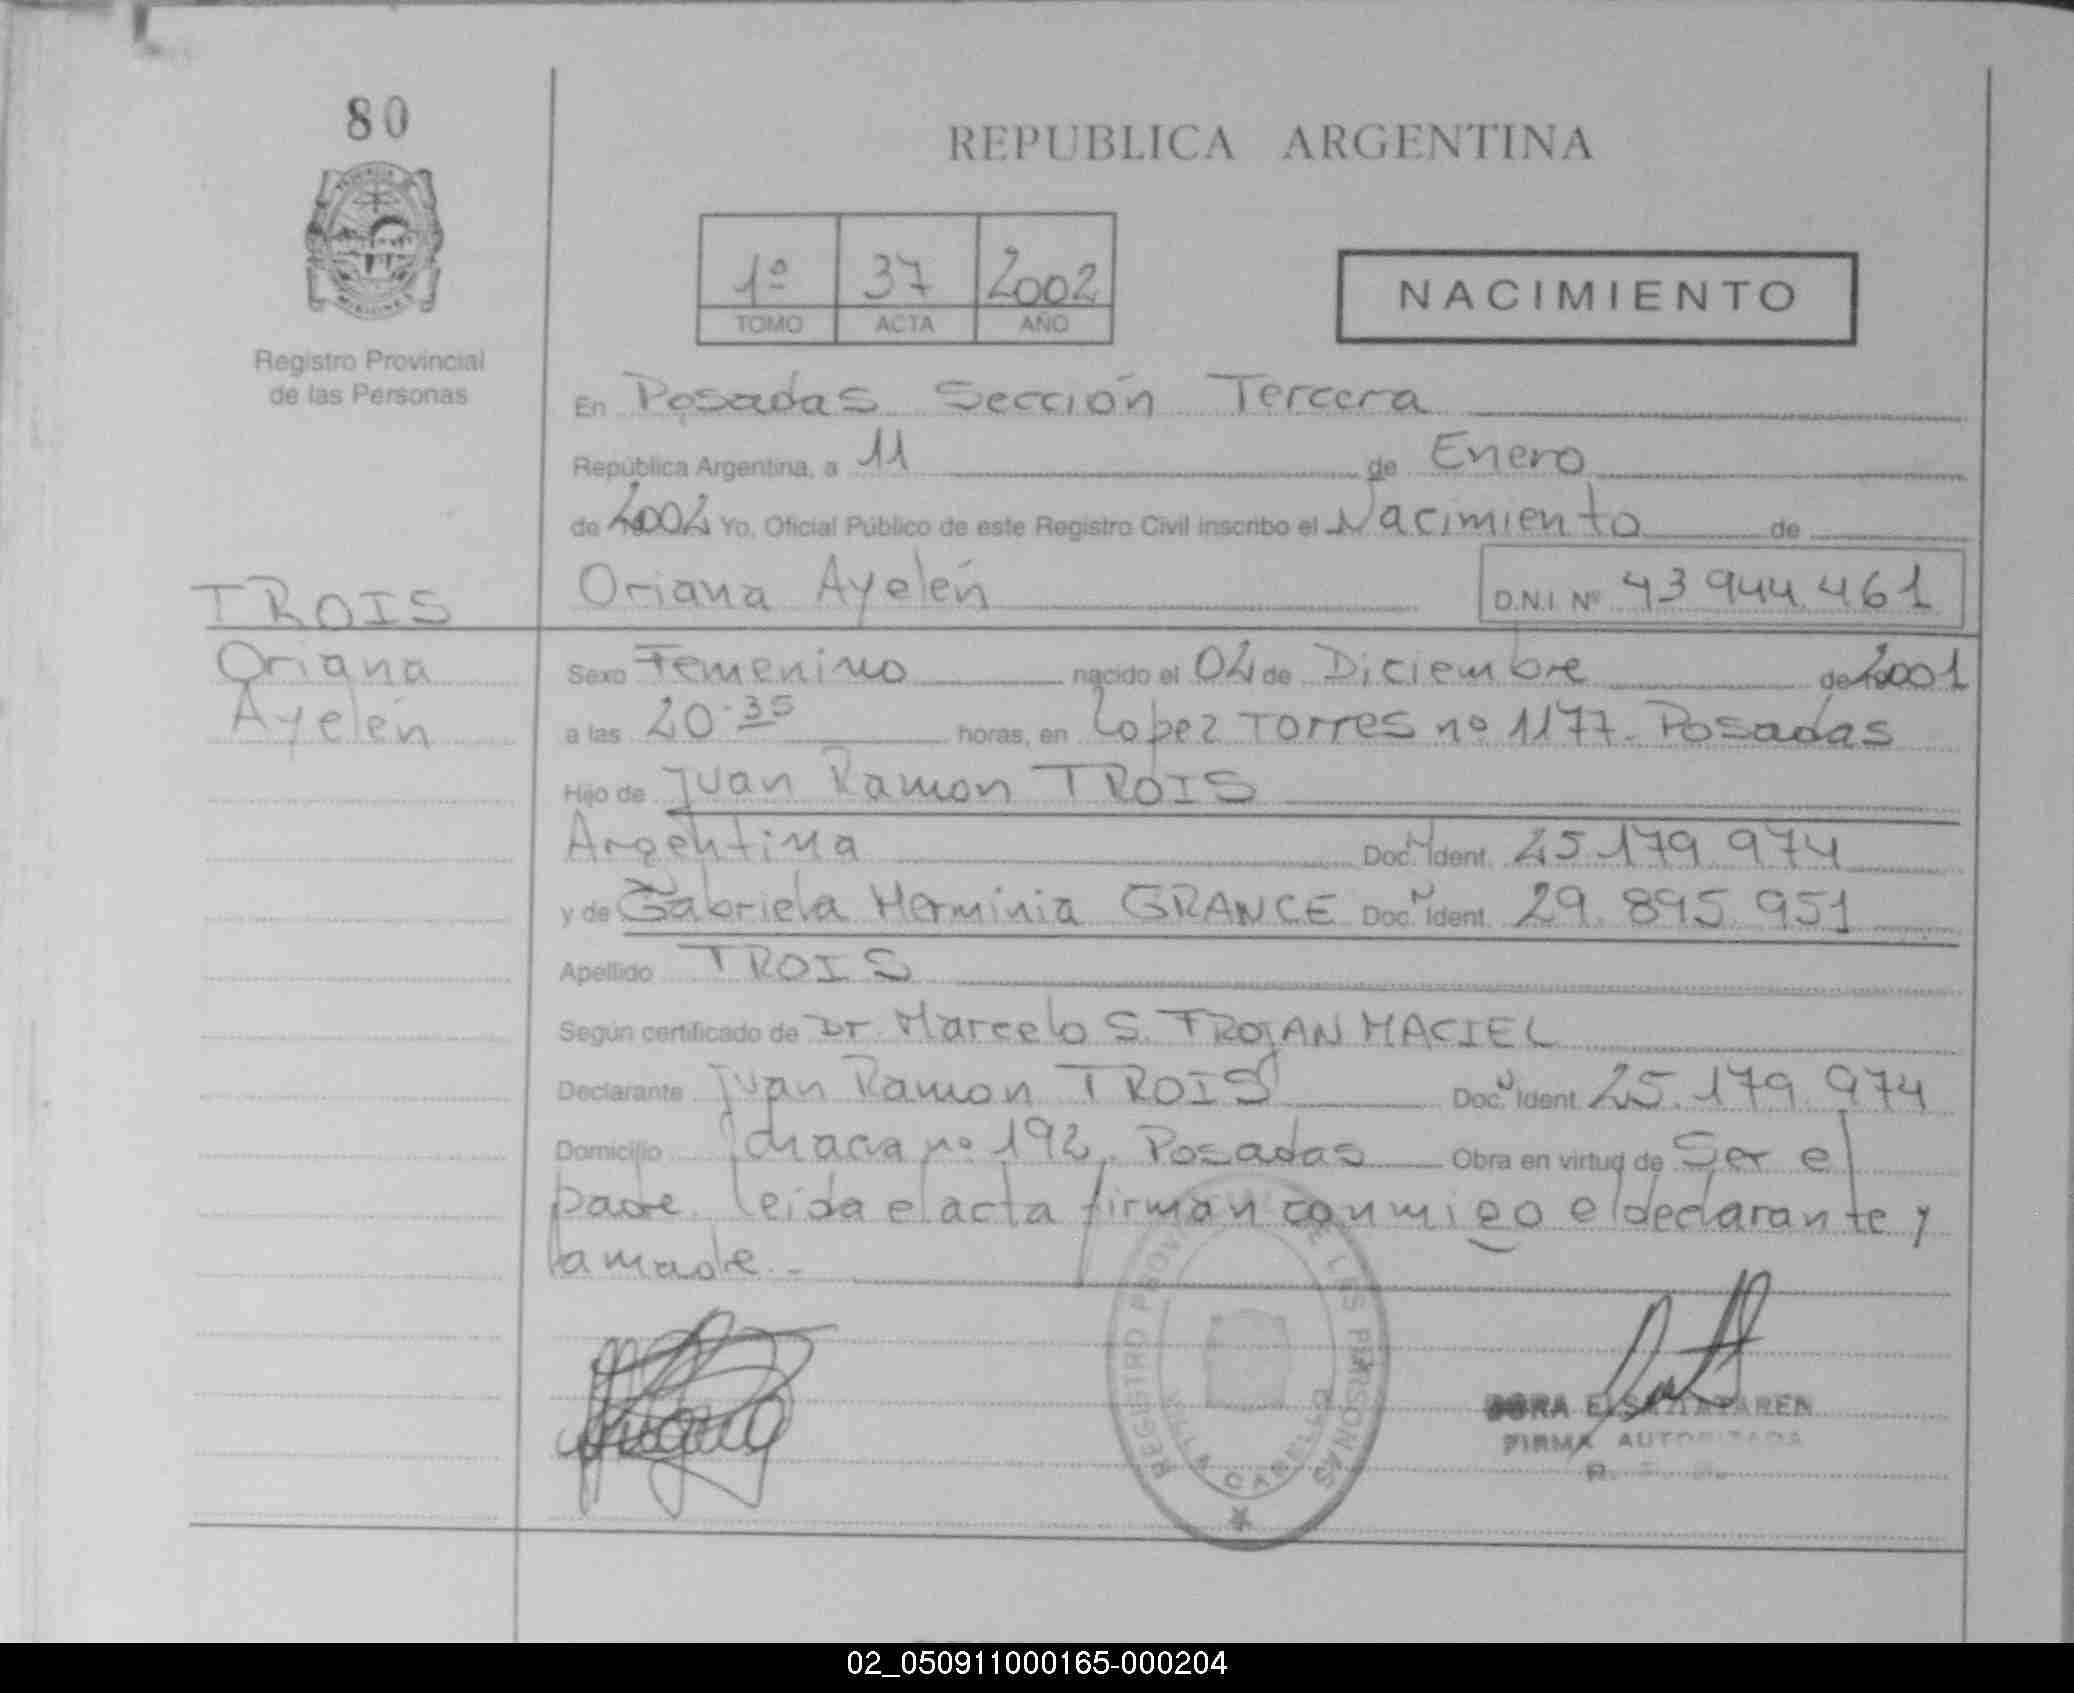 80
REPUBLICA ARGENTINA
1º 37 2002
TOMO ACTA AÑO
NACIMIENTO
Registro Provincial
de las Personas
En Posadas Sección Tercera
República Argentina, a 11 de Enero
de 2002 Yo, Oficial Público de este Registro Civil inscribo el Nacimiento de
TROIS
Oriana Ayelén
D.N.I. Nº 43 944 461
Oriana
Ayelén
Sexo Femenino nacido el 02 de Diciembre de 2001
a las 20.35 horas, en Lopez Torres nº 1177. Posadas
Hijo de Juan Ramon TROIS
Argentina Doc. Ident. 25.179.974
y de Gabriela Herminia GRANCE Doc. Ident. 29.895.951
Apellido TROIS
Según certificado de Dr. Marcelo S. TROJAN MACIEL
Declarante Juan Ramon TROIS Doc. Ident. 25.179.974
Domicilio nº 192, Posadas Obra en virtud de Ser el
padre. Leida el acta firman conmigo el declarante y
la madre.-
REGISTRO PROVINCIAL DE LAS PERSONAS
VILLA CABELLO
DORA ELSA
FIRMA AUTORIZADA
02_050911000165-000204